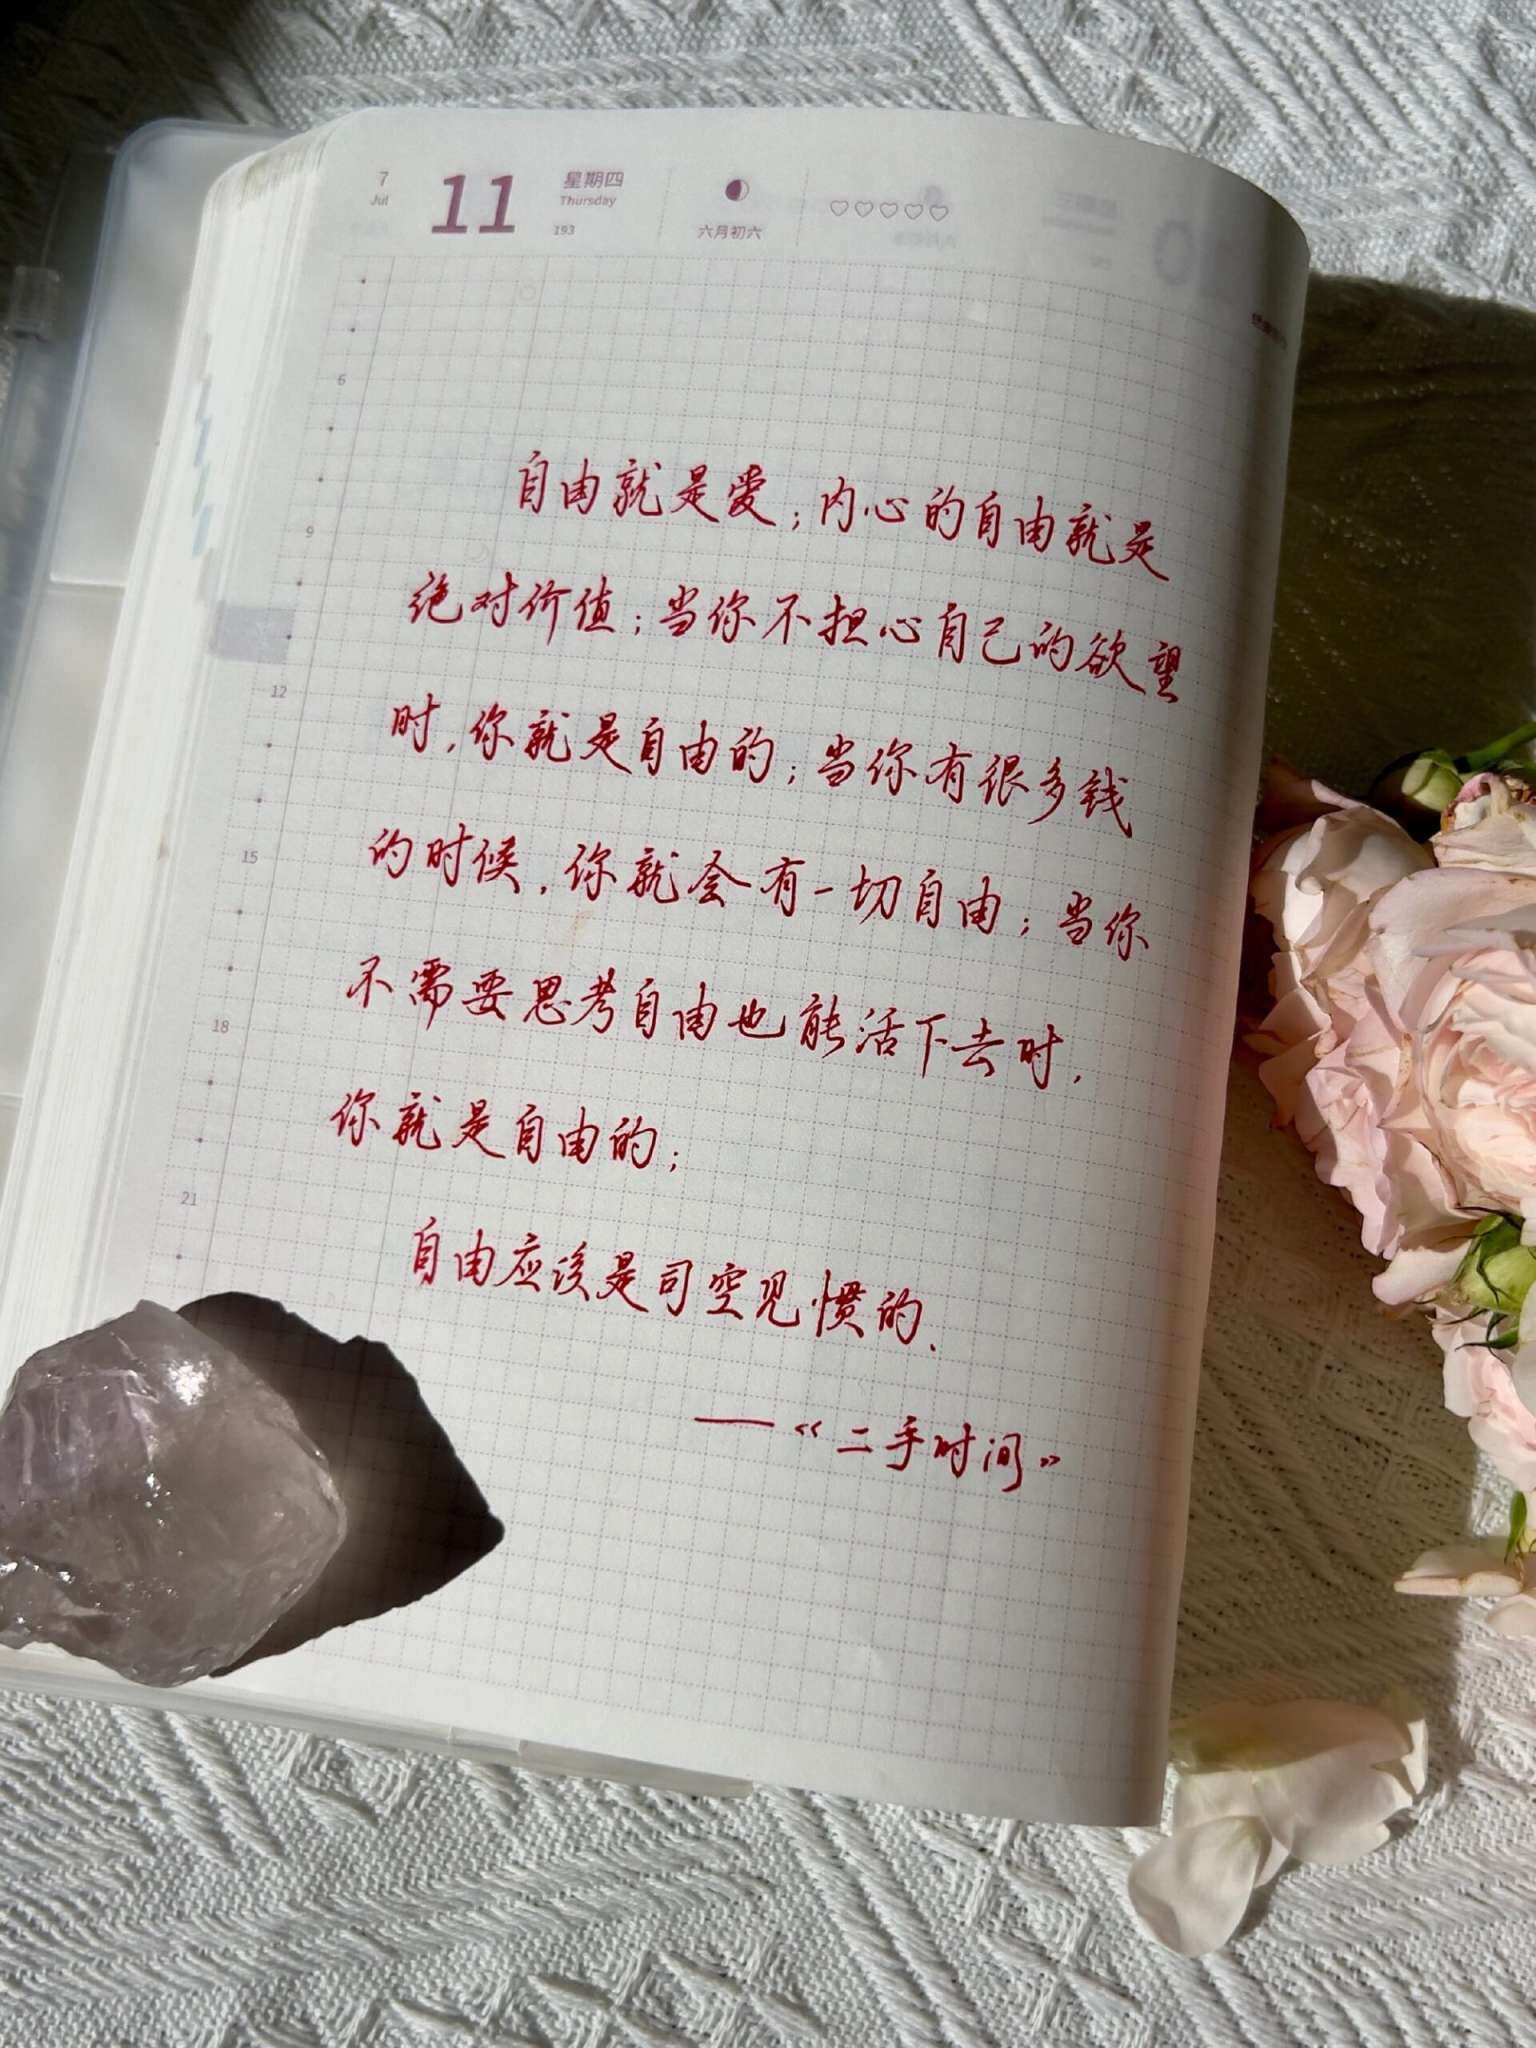 7
Jul
11
星期四
Thursday
193
六月初六
6
9
12
15
18
21
自由就是爱；内心的自由就是
绝对价值；当你不担心自己的欲望
时，你就是自由的；当你有很多钱
的时候，你就会有一切自由；当你
不需要思考自由也能活下去时，
你就是自由的；
自由应该是司空见惯的.
——《二手时间》